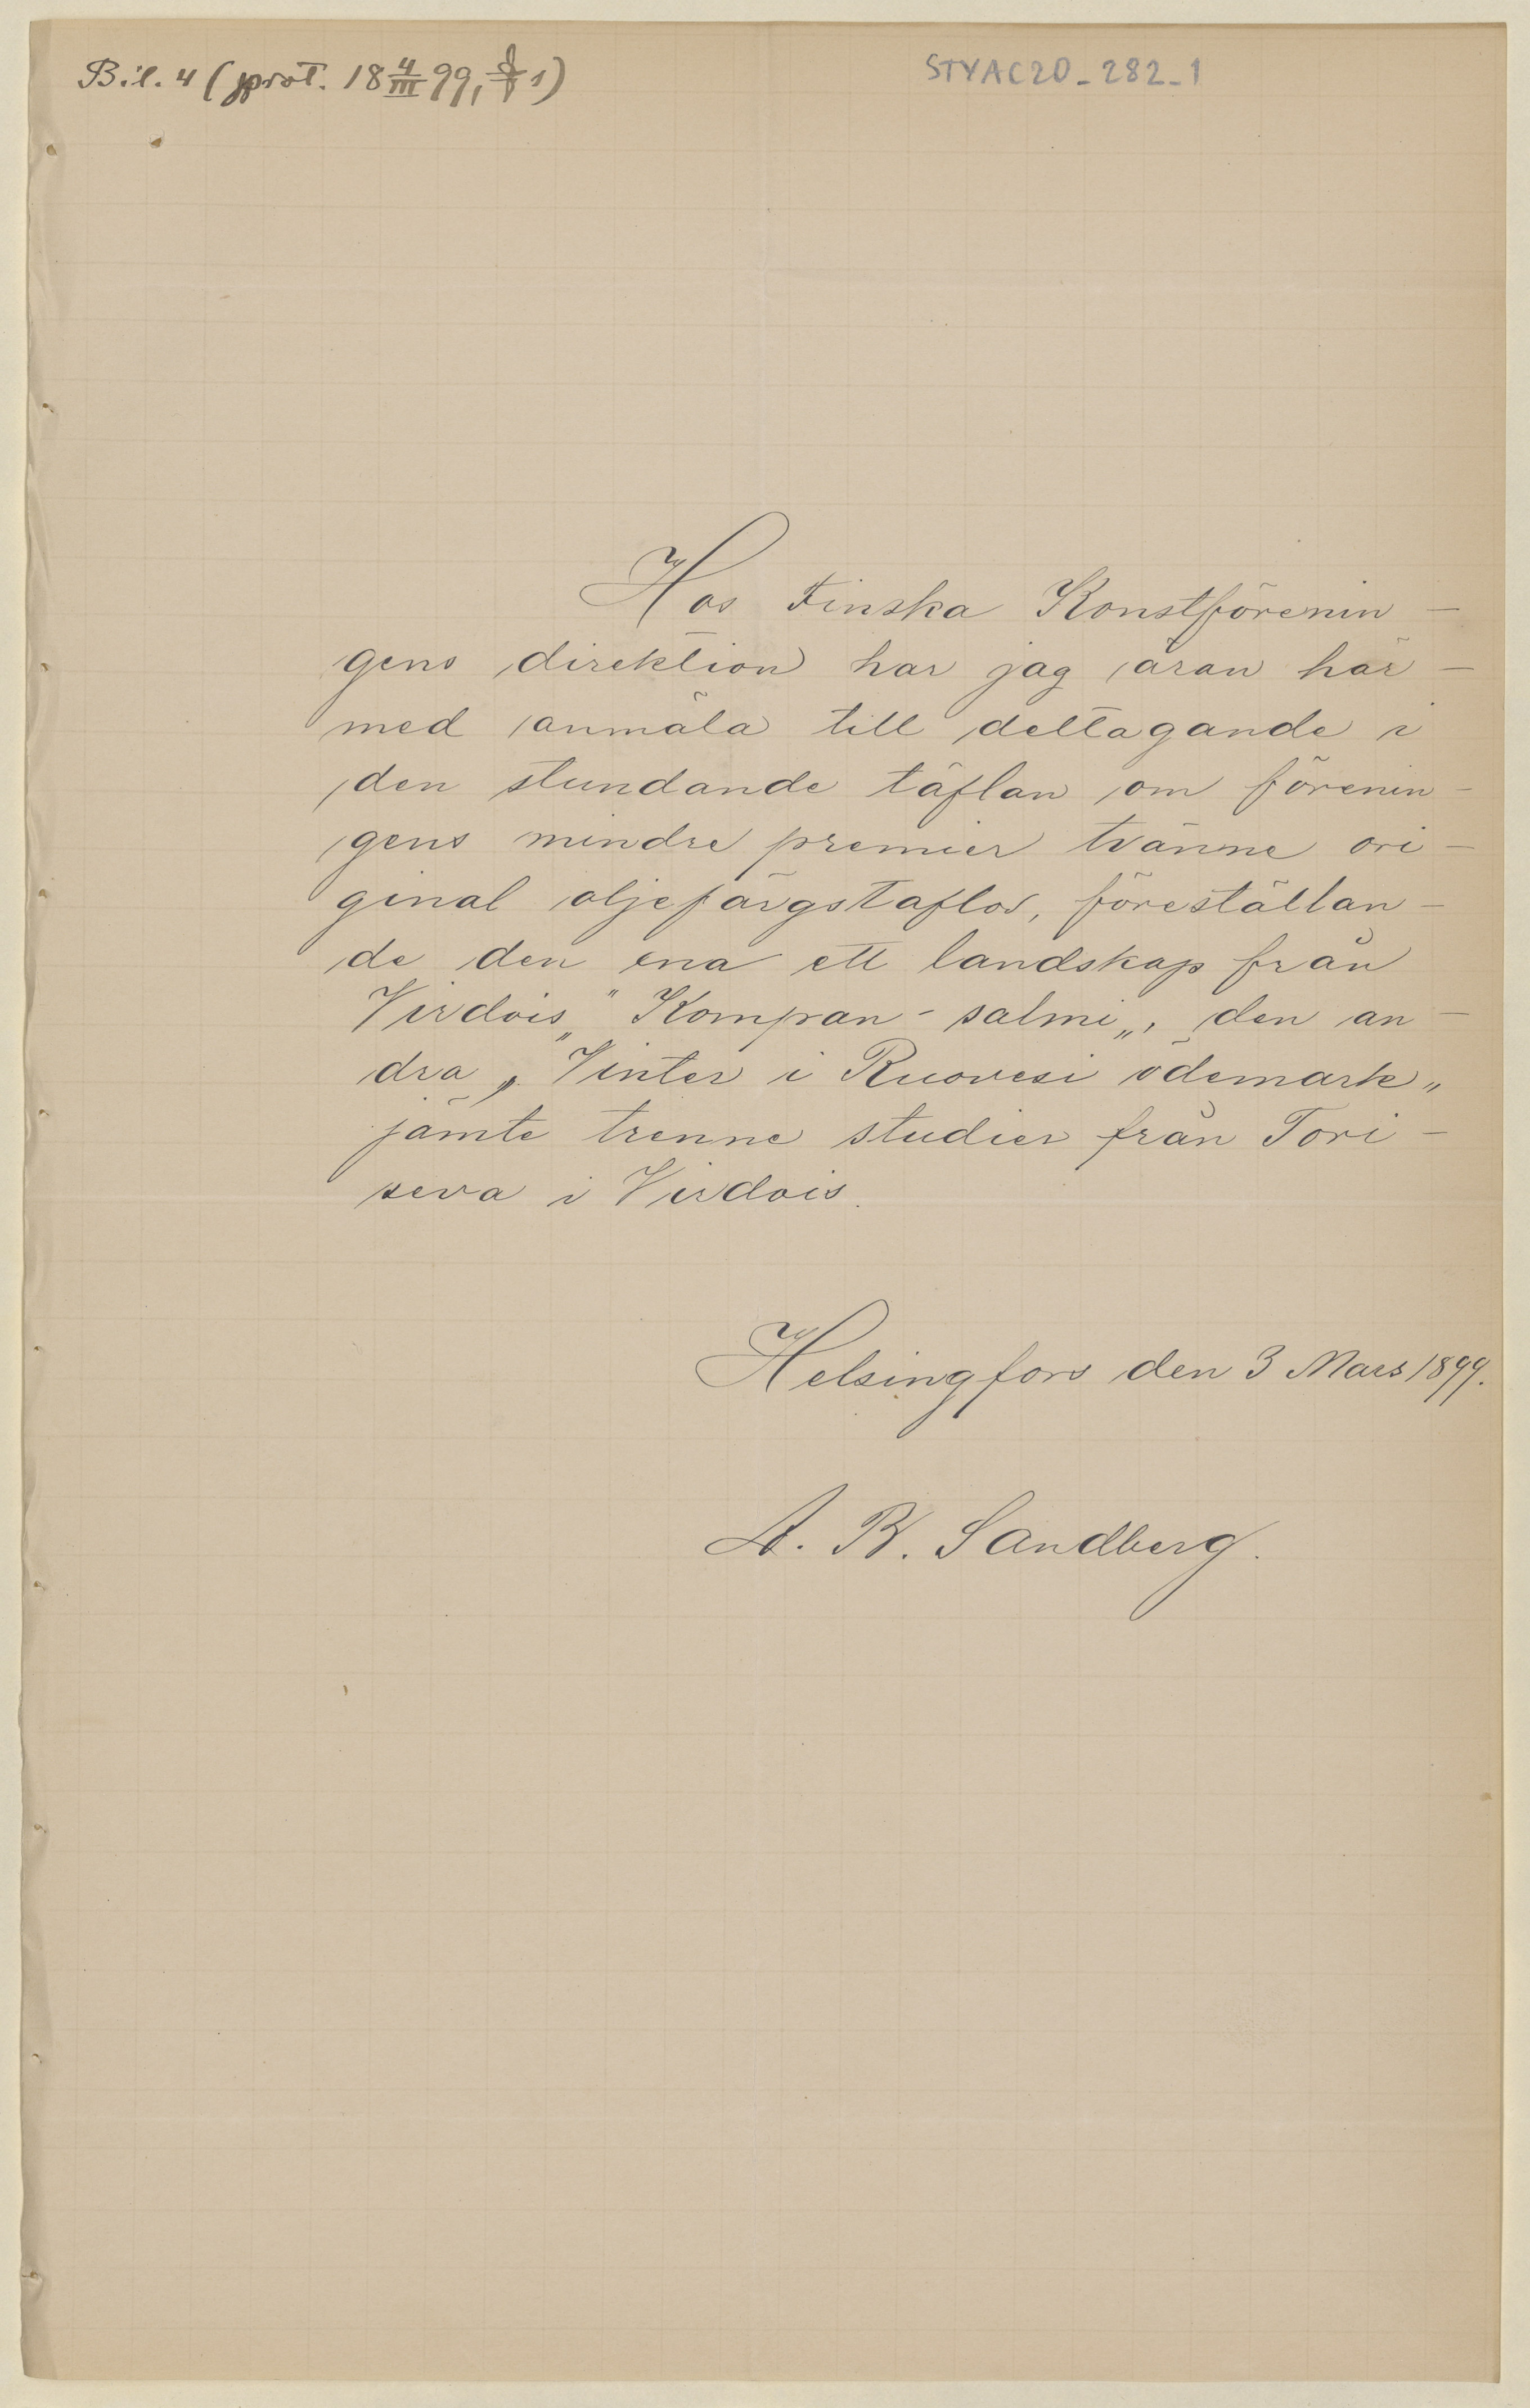 Bil. 4 (prot. 18 4/III 99, § 1)
STYAC20_282_1
Hos Finska Konstförenin-
gens direktion har jag äran här-
med anmäla till deltagande i
den stundande täflan om förenin-
gens mindre premier tvänne ori-
ginal oljefärgstaflor, föreställan-
de den ena ett landskap från
Virdois „"Kompan-salmi„, den an-
dra „Vinter i Ruovesi ödemark„
jämte trenne studier från Tori-
seva i Virdois.
Helsingfors den 3 Mars 1899.
A. B. Sandberg.